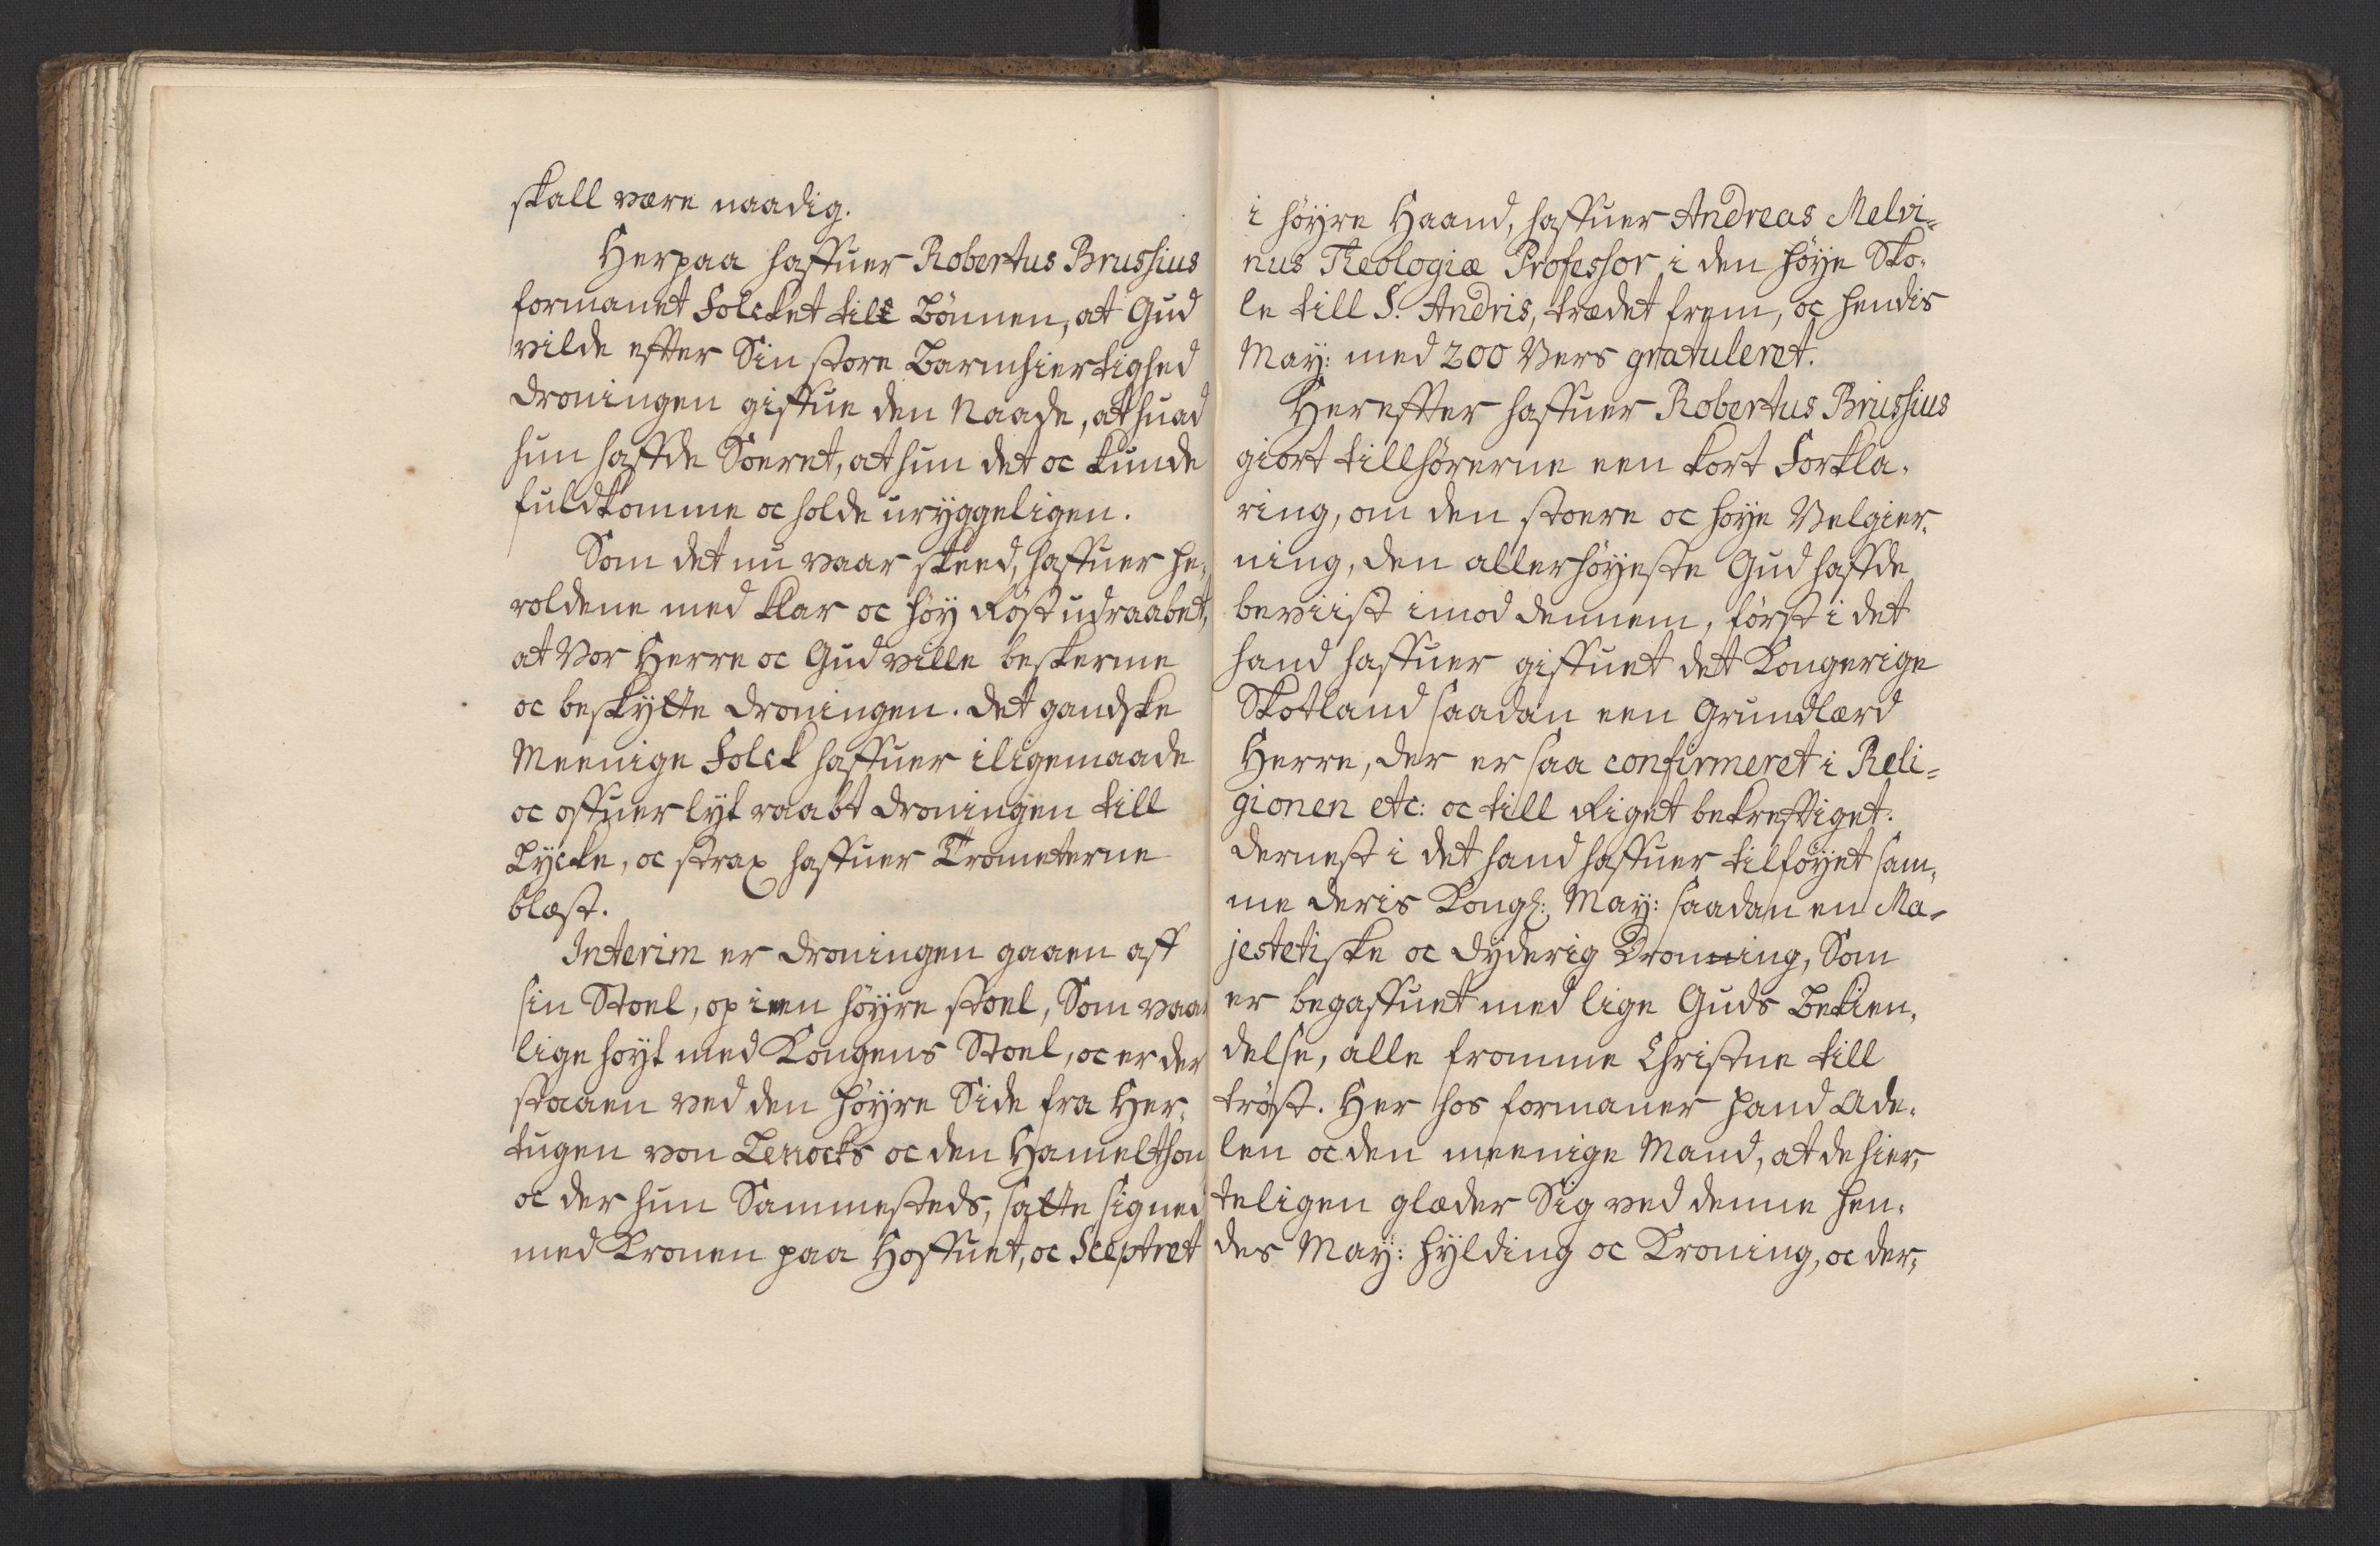 skall være naadig.
Herpaa haffuer Robertus Brussius
formanet Folcket till Bönnen, at Gud
vilde effter Sin store Barmhiertighed
Droningen giffue den Naade, at huad
hun haffde Soeret, at hun det oc kunde
fuldkomme oc holde uryggeligen.
Som det nu vaar skeed, haffuer he-
roldene med klar oc höy Röst udraabet,
at Vor Herre oc Gud ville beskerme
oc beskytte Droningen. Det gandske
Meenige Folck haffuer iligemaade
oc offuerlyt raabt Droningen till
Lycke, oc strax haffuer Trometerne
blæst.
Interim er Droningen gaaen aff
sin Stoel, op i een höyre stoel, Som vaar
lige höyt med Kongens Stoel, oc er der
staaen ved den höyre Side fra Her-
tugen von Lenocks oc den Hamelthon
oc der hun Sammesteds, satte signed
med Kronen paa Hoffuet, oc Sceptret
i höyre Haand, haffuer Andreas Melvi-
nus Theologiæ Professor i den höye Sko-
le till S. Andris, trædet frem, oc hendis
May: med 200 Vers gratuleret.
Hereffter haffuer Robertus Brussius
giort tillhörerne een kort Forkla-
ring, om den stoere oc höye Velgier-
ning, den allerhöyeste Gud haffde
beviist imod dennem, först i det
hand haffuer giffuet det Kongerige
Skotland saadan een Grundlærd
Herre, der er saa confirmeret i Reli-
gionen etc: oc till Riget bekrefftiget.
Dernest i det hand haffuer tilföyet sam-
me deris Kongl: May: saadan en Ma-
jestetiske oc dyderig Droning, Som
er begaffuet med lige Guds Bekien-
delse, alle fromme Christne till
tröst. Her hos formaner hand Ade-
len oc den meenige Mand, at de hier-
teligen glæder Sig ved denne hen-
des May: hylding oc Kroning, oc der-